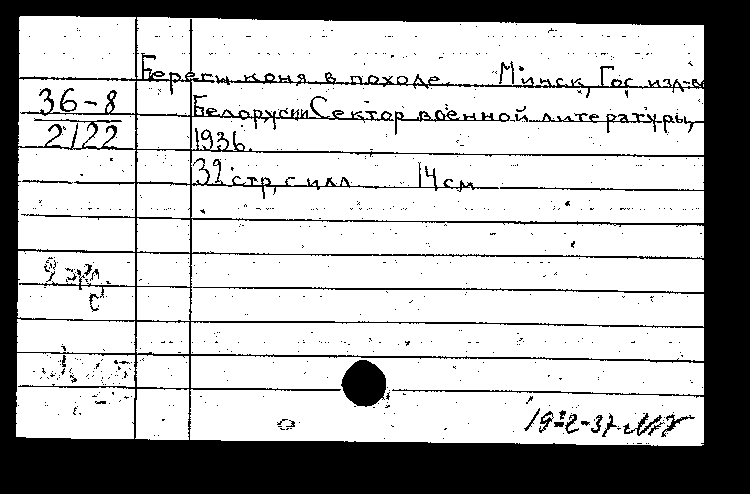 Береги коня в походе. Минск, Гос. изд-во
36-8
Белоруссии Сектор военной литературы,
2122
1936.
32 стр, с илл 14 см
2 экз.